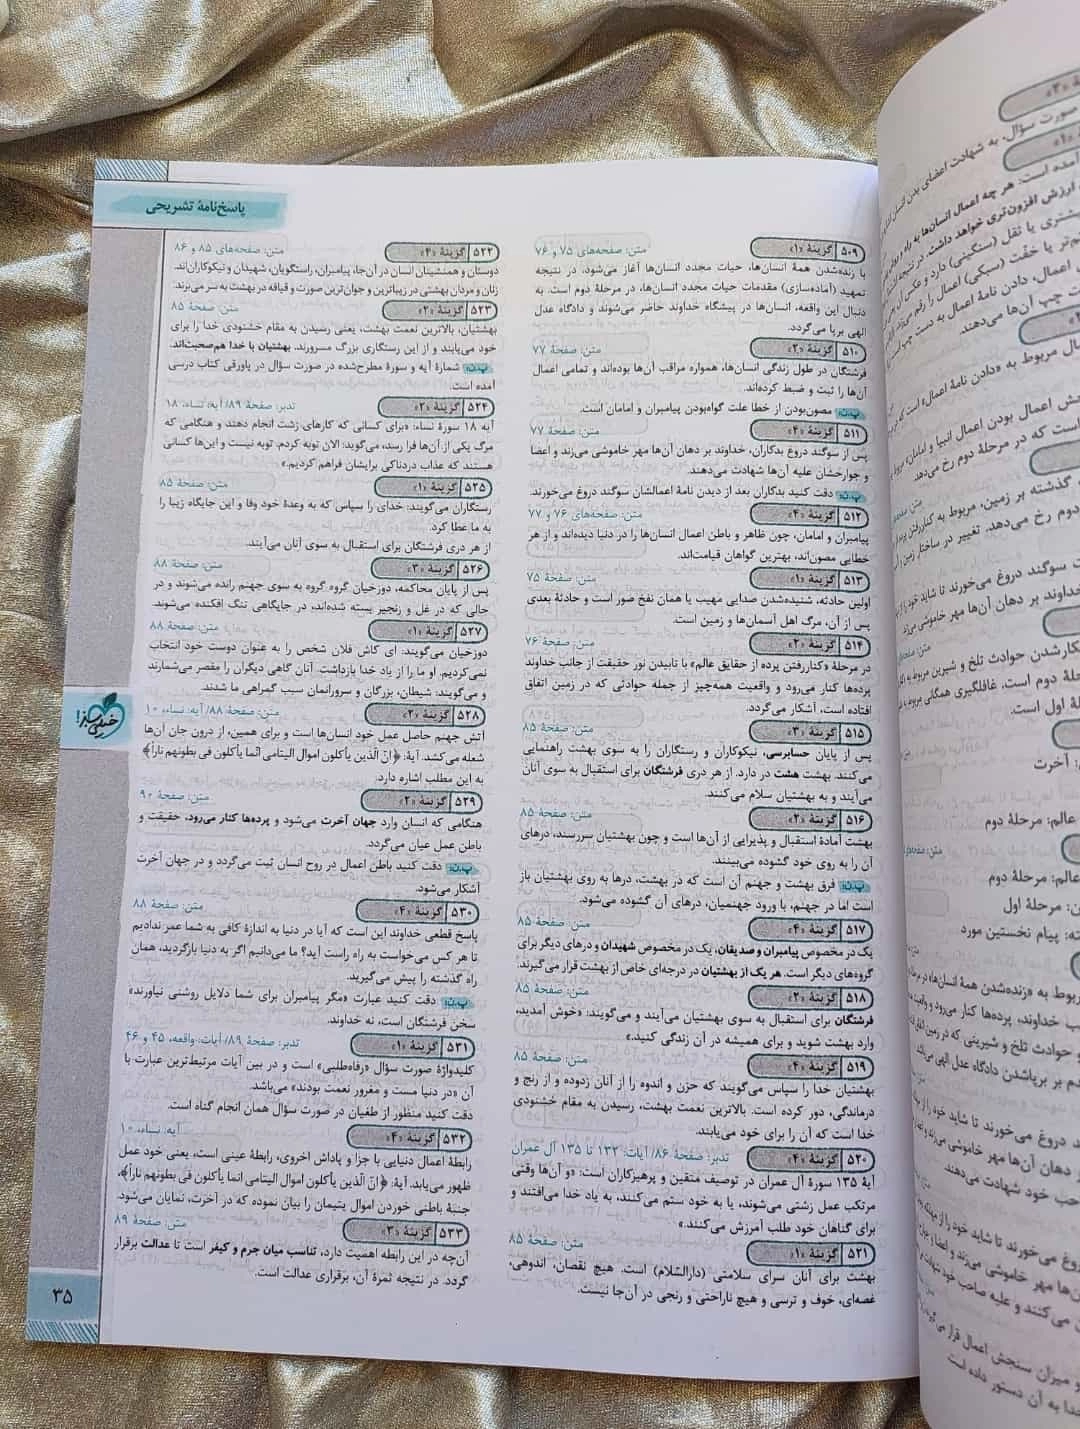 پاسخ‌نامهٔ تشریحی
۵۰۹ گزینهٔ «۱» متن: صفحه‌های ۷۵ و ۷۶
با زنده‌شدن همهٔ انسان‌ها، حیات مجدد انسان‌ها آغاز می‌شود، در نتیجه
تمهید (آماده‌سازی) مقدمات حیات مجدد انسان‌ها، در مرحلهٔ دوم است. به
دنبال این واقعه، انسان‌ها در پیشگاه خداوند حاضر می‌شوند و دادگاه عدل
الهی برپا می‌گردد.
۵۱۰ گزینهٔ «۲» متن: صفحهٔ ۷۷
فرشتگان در طول زندگی انسان‌ها، همواره مراقب آن‌ها بوده‌اند و تمامی اعمال
آن‌ها را ثبت و ضبط کرده‌اند.
پ.ن: مصون‌بودن از خطا علت گواه‌بودن پیامبران و امامان است.
۵۱۱ گزینهٔ «۴» متن: صفحهٔ ۷۷
پس از سوگند دروغ بدکاران، خداوند بر دهان آن‌ها مهر خاموشی می‌زند و اعضا
و جوارحشان علیه آن‌ها شهادت می‌دهند.
پ.ن: دقت کنید بدکاران بعد از دیدن نامهٔ اعمالشان سوگند دروغ می‌خورند.
۵۱۲ گزینهٔ «۴» متن: صفحه‌های ۷۶ و ۷۷
پیامبران و امامان، چون ظاهر و باطن اعمال انسان‌ها را در دنیا دیده‌اند و از هر
خطایی مصون‌اند، بهترین گواهان قیامت‌اند.
۵۱۳ گزینهٔ «۱» متن: صفحهٔ ۷۵
اولین حادثه، شنیده‌شدن صدایی مهیب یا همان نفخ صور است و حادثهٔ بعدی
پس از آن، مرگ اهل آسمان‌ها و زمین است.
۵۱۴ گزینهٔ «۲» متن: صفحهٔ ۷۶
در مرحلهٔ «کناررفتن پرده از حقایق عالم» با تابیدن نور حقیقت از جانب خداوند
پرده‌ها کنار می‌رود و واقعیت همه‌چیز از جمله حوادثی که در زمین اتفاق
افتاده است، آشکار می‌گردد.
۵۱۵ گزینهٔ «۳» متن: صفحهٔ ۸۵
پس از پایان حسابرسی، نیکوکاران و رستگاران را به سوی بهشت راهنمایی
می‌کنند. بهشت هشت در دارد. از هر دری فرشتگان برای استقبال به سوی آنان
می‌آیند و به بهشتیان سلام می‌کنند.
۵۱۶ گزینهٔ «۲» متن: صفحهٔ ۸۵
بهشت آمادهٔ استقبال و پذیرایی از آن‌ها است و چون بهشتیان سررسند، درهای
آن را به روی خود گشوده می‌بینند.
پ.ن: فرق بهشت و جهنم آن است که در بهشت، درها به روی بهشتیان باز
است اما در جهنم، با ورود جهنمیان، درهای آن گشوده می‌شود.
۵۱۷ گزینهٔ «۴» متن: صفحهٔ ۸۵
یک در مخصوص پیامبران و صدیقان، یک در مخصوص شهیدان و درهای دیگر برای
گروه‌های دیگر است. هر یک از بهشتیان در درجه‌ای خاص از بهشت قرار می‌گیرند.
۵۱۸ گزینهٔ «۲» متن: صفحهٔ ۸۵
فرشتگان برای استقبال به سوی بهشتیان می‌آیند و می‌گویند: «خوش آمدید،
وارد بهشت شوید و برای همیشه در آن زندگی کنید.»
۵۱۹ گزینهٔ «۴» متن: صفحهٔ ۸۵
بهشتیان خدا را سپاس می‌گویند که حزن و اندوه را از آنان زدوده و از رنج و
درماندگی، دور کرده است. بالاترین نعمت بهشت، رسیدن به مقام خشنودی
خدا است که آن را برای خود می‌یابند.
۵۲۰ گزینهٔ «۴» تدبر: صفحهٔ ۸۶/ آیات: ۱۳۳ تا ۱۳۵ آل عمران
آیهٔ ۱۳۵ سورهٔ آل عمران در توصیف متقین و پرهیزکاران است: «و آن‌ها وقتی
مرتکب عمل زشتی می‌شوند، یا به خود ستم می‌کنند، به یاد خدا می‌افتند و
برای گناهان خود طلب آمرزش می‌کنند.»
۵۲۱ گزینهٔ «۱» متن: صفحهٔ ۸۵
بهشت برای آنان سرای سلامتی (دارالسّلام) است. هیچ نقصان، اندوهی،
غصه‌ای، خوف و ترسی و هیچ ناراحتی و رنجی در آن‌جا نیست.
۵۲۲ گزینهٔ «۴» متن: صفحه‌های ۸۵ و ۸۶
دوستان و همنشینان انسان در آن‌جا، پیامبران، راستگویان، شهیدان و نیکوکاران‌اند.
زنان و مردان بهشتی در زیباترین و جوان‌ترین صورت و قیافه در بهشت به سر می‌برند.
۵۲۳ گزینهٔ «۲» متن: صفحهٔ ۸۵
بهشتیان، بالاترین نعمت بهشت، یعنی رسیدن به مقام خشنودی خدا را برای
خود می‌یابند و از این رستگاری بزرگ مسرورند. بهشتیان با خدا هم‌صحبت‌اند.
پ.ن: شمارهٔ آیه و سورهٔ مطرح‌شده در صورت سؤال در پاورقی کتاب درسی
آمده است.
۵۲۴ گزینهٔ «۲» تدبر: صفحهٔ ۸۹/ آیه: نساء، ۱۸
آیه ۱۸ سورهٔ نساء: «برای کسانی که کارهای زشت انجام دهند و هنگامی که
مرگ یکی از آن‌ها فرا رسد، می‌گوید: الان توبه کردم، توبه نیست و این‌ها کسانی
هستند که عذاب دردناکی برایشان فراهم کردیم.»
۵۲۵ گزینهٔ «۱» متن: صفحهٔ ۸۵
رستگاران می‌گویند: خدای را سپاس که به وعدهٔ خود وفا و این جایگاه زیبا را
به ما عطا کرد.
از هر دری فرشتگان برای استقبال به سوی آنان می‌آیند.
۵۲۶ گزینهٔ «۳» متن: صفحهٔ ۸۸
پس از پایان محاکمه، دوزخیان گروه گروه به سوی جهنم رانده می‌شوند و در
حالی که در غل و زنجیر بسته شده‌اند، در جایگاهی تنگ افکنده می‌شوند.
۵۲۷ گزینهٔ «۱» متن: صفحهٔ ۸۸
دوزخیان می‌گویند: ای کاش فلان شخص را به عنوان دوست خود انتخاب
نمی‌کردیم. او ما را از یاد خدا بازداشت. آنان گاهی دیگران را مقصر می‌شمارند
و می‌گویند: شیطان، بزرگان و سرورانمان سبب گمراهی ما شدند.
۵۲۸ گزینهٔ «۲» متن: صفحهٔ ۸۸/ آیه: نساء، ۱۰
آتش جهنم حاصل عمل خود انسان‌ها است و برای همین، از درون جان آن‌ها
شعله می‌کشد. آیهٔ: ﴿انّ الّذین یأکلون اموال الیتامی انّما یأکلون فی بطونهم ناراً﴾
به این مطلب اشاره دارد.
۵۲۹ گزینهٔ «۲» متن: صفحهٔ ۹۰
هنگامی که انسان وارد جهان آخرت می‌شود و پرده‌ها کنار می‌رود، حقیقت و
باطن عمل عیان می‌گردد.
پ.ن: دقت کنید باطن اعمال در روح انسان ثبت می‌گردد و در جهان آخرت
آشکار می‌شود.
۵۳۰ گزینهٔ «۴» متن: صفحهٔ ۸۸
پاسخ قطعی خداوند این است که آیا در دنیا به اندازهٔ کافی به شما عمر ندادیم
تا هر کس می‌خواست به راه راست آید؟ ما می‌دانیم اگر به دنیا بازگردید، همان
راه گذشته را پیش می‌گیرید.
پ.ن: دقت کنید عبارت «مگر پیامبران برای شما دلایل روشنی نیاورند»
سخن فرشتگان است، نه خداوند.
۵۳۱ گزینهٔ «۱» تدبر: صفحهٔ ۸۹/ آیات: واقعه، ۴۵ و ۴۶
کلیدواژهٔ صورت سؤال «رفاه‌طلبی» است و در بین آیات مرتبط‌ترین عبارت با
آن «در دنیا مست و مغرور نعمت بودند» می‌باشد.
دقت کنید منظور از طغیان در صورت سؤال همان انجام گناه است.
۵۳۲ گزینهٔ «۴» آیه: نساء، ۱۰
رابطهٔ اعمال دنیایی با جزا و پاداش اخروی، رابطهٔ عینی است، یعنی خود عمل
ظهور می‌یابد. آیهٔ: ﴿انّ الّذین یأکلون اموال الیتامی انّما یأکلون فی بطونهم ناراً﴾،
جنبهٔ باطنی خوردن اموال یتیمان را بیان نموده که در آخرت، نمایان می‌شود.
۵۳۳ گزینهٔ «۳» متن: صفحهٔ ۸۹
آن‌چه در این رابطه اهمیت دارد، تناسب میان جرم و کیفر است تا عدالت برقرار
گردد. در نتیجه ثمرهٔ آن، برقراری عدالت است.
خیلی سبز!
۳۵
صورت سؤال، به شهادت اعضای بدن انسان
آمده است: هر چه اعمال انسان‌ها به راه و روش
ارزش افزون‌تری خواهد داشت. در نتیجه
عالم: مرحلهٔ دوم
عالم: مرحلهٔ دوم
مرحلهٔ اول
پیام نخستین مورد